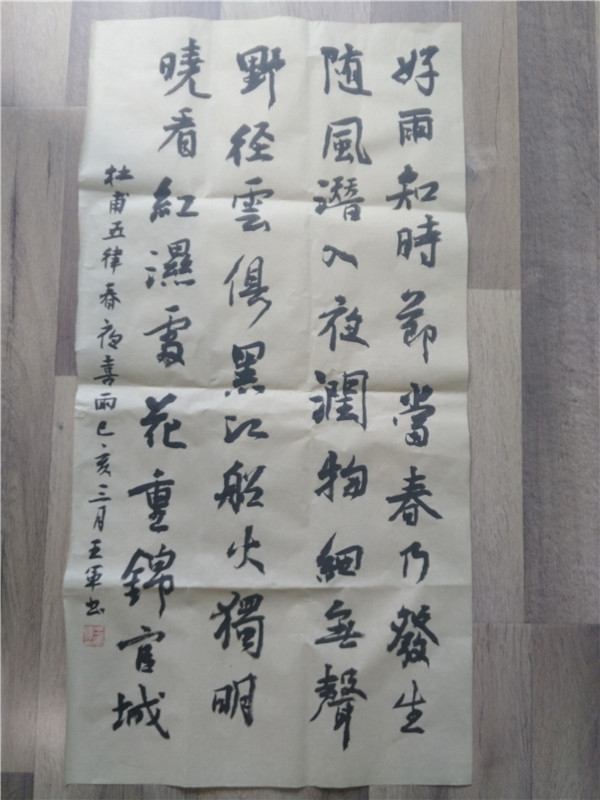 好雨知時節當春乃發生
随風潛入夜潤物細無聲
野径雲俱黑江船火獨明
曉看紅濕處花重錦官城
杜甫五律春夜喜雨己亥三月王軍书